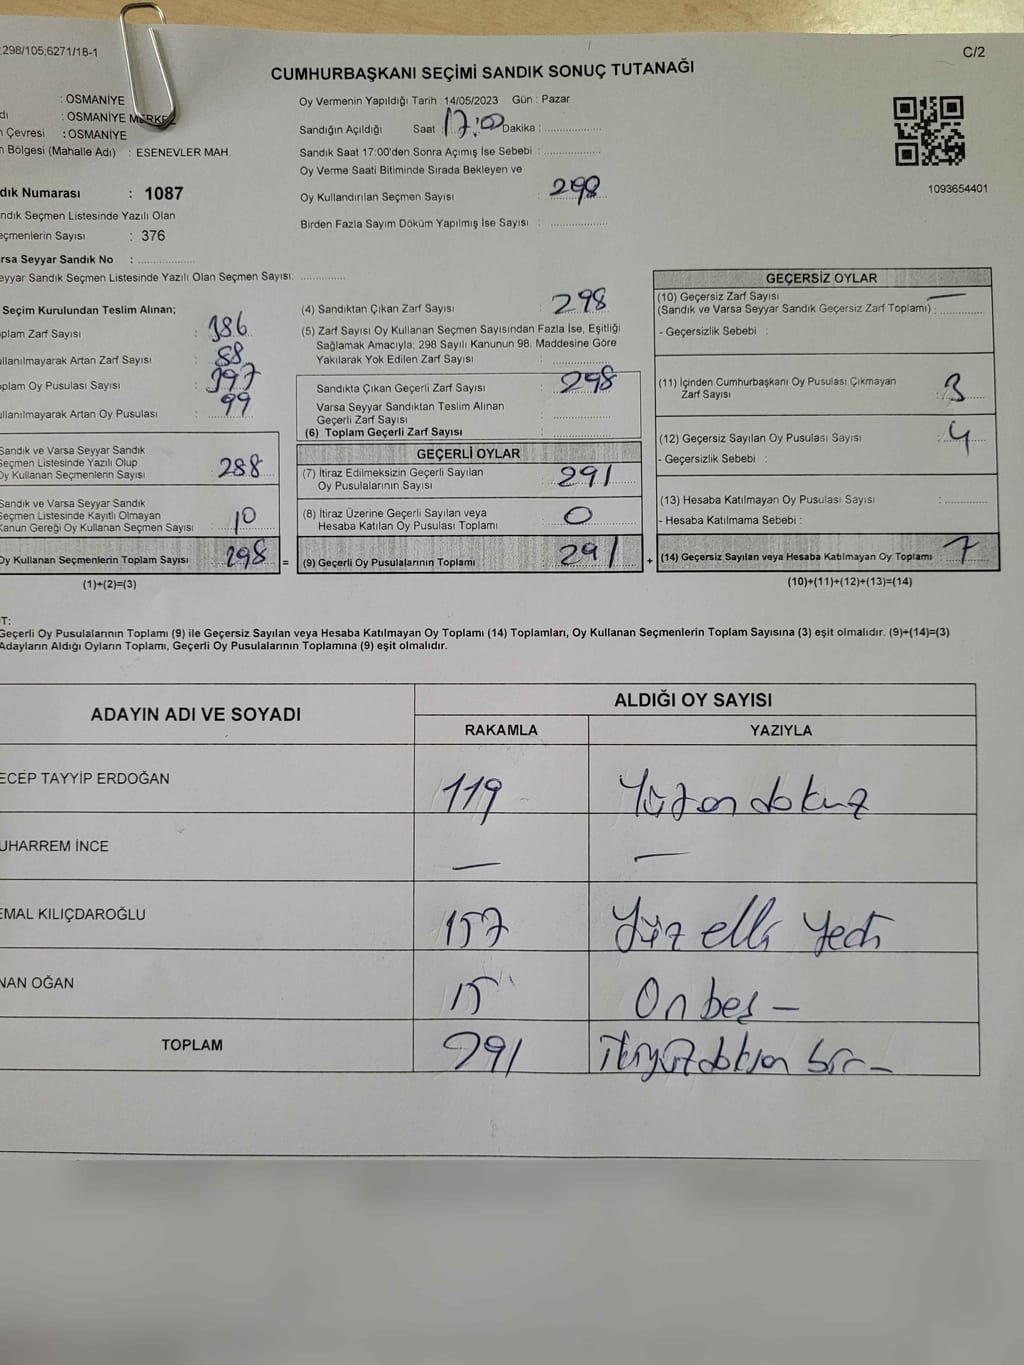 298/105;6271/18-1
C/2
CUMHURBAŞKANI SEÇİMİ SANDIK SONUÇ TUTANAĞI
: OSMANİYE
dı : OSMANİYE MERKEZ
n Çevresi : OSMANİYE
n Bölgesi (Mahalle Adı) : ESENEVLER MAH.
dık Numarası : 1087
ndık Seçmen Listesinde Yazılı Olan
eçmenlerin Sayısı : 376
rsa Seyyar Sandık No : ....................
eyyar Sandık Seçmen Listesinde Yazılı Olan Seçmen Sayısı: ...............
Oy Vermenin Yapıldığı Tarih : 14/05/2023 Gün : Pazar
Sandığın Açıldığı Saat : 17:00 Dakika : ....................
Sandık Saat 17:00'den Sonra Açımış İse Sebebi : ....................
Oy Verme Saati Bitiminde Sırada Bekleyen ve
Oy Kullandırılan Seçmen Sayısı : 298
Birden Fazla Sayım Döküm Yapılmış İse Sayısı : ....................
1093654401
Seçim Kurulundan Teslim Alınan;
plam Zarf Sayısı : 386
ullanılmayarak Artan Zarf Sayısı : 88
plam Oy Pusulası Sayısı : 397
ullanılmayarak Artan Oy Pusulası : 99
Sandık ve Varsa Seyyar Sandık
Seçmen Listesinde Yazılı Olup
Oy Kullanan Seçmenlerin Sayısı : 288
Sandık ve Varsa Seyyar Sandık
Seçmen Listesinde Kayıtlı Olmayan
Kanun Gereği Oy Kullanan Seçmen Sayısı : 10
Oy Kullanan Seçmenlerin Toplam Sayısı : 298 =
(1)+(2)=(3)
(4) Sandıktan Çıkan Zarf Sayısı : 298
(5) Zarf Sayısı Oy Kullanan Seçmen Sayısından Fazla İse, Eşitliği
Sağlamak Amacıyla; 298 Sayılı Kanunun 98. Maddesine Göre
Yakılarak Yok Edilen Zarf Sayısı : ....................
Sandıkta Çıkan Geçerli Zarf Sayısı : 298
Varsa Seyyar Sandıktan Teslim Alınan
Geçerli Zarf Sayısı : ....................
(6) Toplam Geçerli Zarf Sayısı : ....................
GEÇERLİ OYLAR
(7) İtiraz Edilmeksizin Geçerli Sayılan
Oy Pusulalarının Sayısı : 291
(8) İtiraz Üzerine Geçerli Sayılan veya
Hesaba Katılan Oy Pusulası Toplamı : 0
(9) Geçerli Oy Pusulalarının Toplamı : 291 +
GEÇERSİZ OYLAR
(10) Geçersiz Zarf Sayısı
(Sandık ve Varsa Seyyar Sandık Geçersiz Zarf Toplamı) : —
- Geçersizlik Sebebi :
(11) İçinden Cumhurbaşkanı Oy Pusulası Çıkmayan
Zarf Sayısı : 3
(12) Geçersiz Sayılan Oy Pusulası Sayısı : 4
- Geçersizlik Sebebi :
(13) Hesaba Katılmayan Oy Pusulası Sayısı : ...............
- Hesaba Katılmama Sebebi :
(14) Geçersiz Sayılan veya Hesaba Katılmayan Oy Toplamı : 7
(10)+(11)+(12)+(13)=(14)
T:
Geçerli Oy Pusulalarının Toplamı (9) ile Geçersiz Sayılan veya Hesaba Katılmayan Oy Toplamı (14) Toplamları, Oy Kullanan Seçmenlerin Toplam Sayısına (3) eşit olmalıdır. (9)+(14)=(3)
Adayların Aldığı Oyların Toplamı, Geçerli Oy Pusulalarının Toplamına (9) eşit olmalıdır.
ADAYIN ADI VE SOYADI
ALDIĞI OY SAYISI
RAKAMLA YAZIYLA
ECEP TAYYİP ERDOĞAN 119 Yüzon dokuz
UHARREM İNCE — —
EMAL KILIÇDAROĞLU 157 Yüz elli Yedi
NAN OĞAN 15 On beş —
TOPLAM 291 ikiyüzdoksan bir —